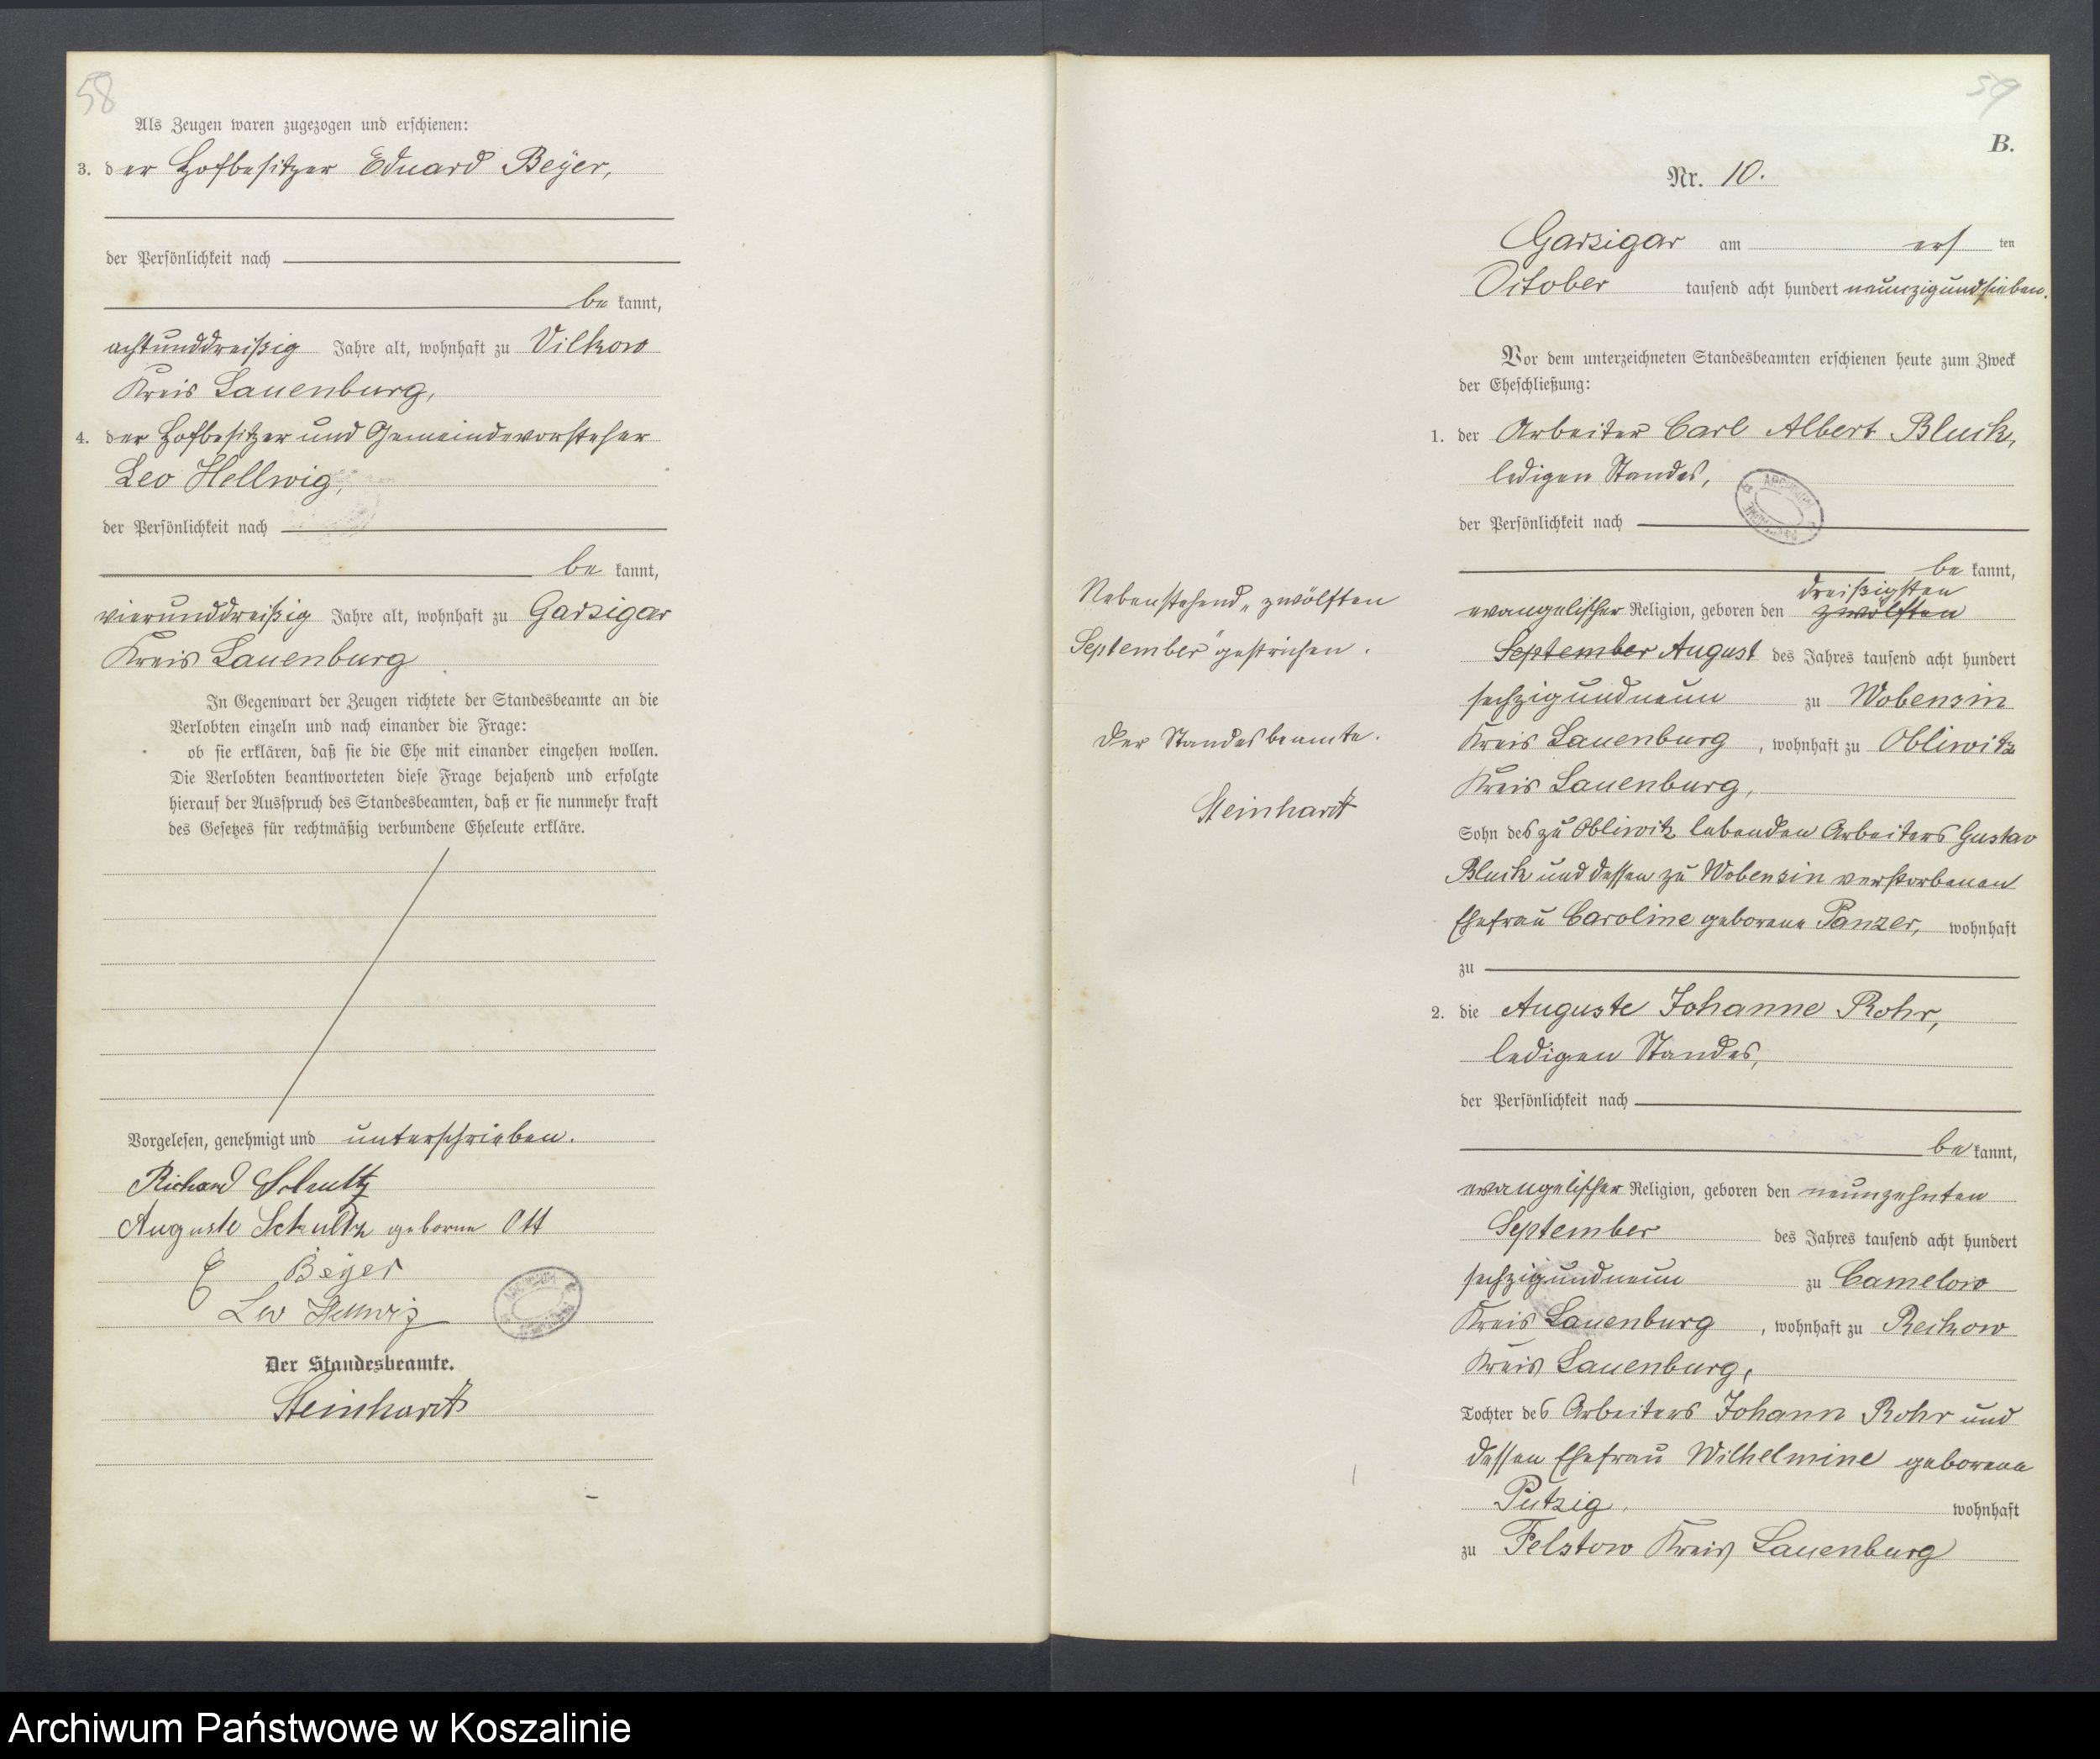 58
Als Zeugen waren zugezogen und erschienen:
3. der Hofbesitzer Eduard Beÿer,
der Persönlichkeit nach
be kannt,
achtunddreißig Jahre alt, wohnhaft zu Vilkow
Kreis Lauenburg,
4. der Hofbesitzer und Gemeindevorsteher
Leo Hellwig,
der Persönlichkeit nach
be kannt,
vierunddreißig Jahre alt, wohnhaft zu Garzigar
Kreis Lauenburg
In Gegenwart der Zeugen richtete der Standesbeamte an die
Verlobten einzeln und nach einander die Frage:
ob sie erklären, daß sie die Ehe mit einander eingehen wollen.
Die Verlobten beantworteten diese Frage bejahend und erfolgte
hierauf der Ausspruch des Standesbeamten, daß er sie nunmehr kraft
des Gesetzes für rechtmäßig verbundene Eheleute erkläre.
Vorgelesen, genehmigt und unterschrieben.
Richard Schultz
Auguste Schultz geborne Ott
E Beÿer
Leo Hellwig
Der Standesbeamte.
Steinhardt
59
B.
Nr. 10.
Garzigar am ersten
October tausend acht hundert neunzigundsieben.
Vor dem unterzeichneten Standesbeamten erschienen heute zum Zweck
der Eheschließung:
1. der Arbeiter Carl Albert Bluck,
ledigen Standes,
der Persönlichkeit nach
be kannt,
dreißigsten
evangelischer Religion, geboren den zwölften
September August des Jahres tausend acht hundert
sechzigundneun zu Wobensin
Kreis Lauenburg, wohnhaft zu Obliwitz
Kreis Lauenburg,
Sohn des zu Obliwitz lebenden Arbeiters Gustav
Bluck und dessen zu Wobensin verstorbenen
Ehefrau Caroline geborene Panzer, wohnhaft
zu
2. die Auguste Johanne Rohr,
ledigen Standes,
der Persönlichkeit nach
be kannt,
evangelischer Religion, geboren den neunzehnten
September des Jahres tausend acht hundert
sechzigundneun zu Camelow
Kreis Lauenburg, wohnhaft zu Reckow
Kreis Lauenburg,
Tochter des Arbeiters Johann Rohr und
dessen Ehefrau Wilhelmine geborene
Putzig, wohnhaft
zu Felstow Kreis Lauenburg
Nebenstehend „zwölften
September" gestrichen.
Der Standesbeamte.
Steinhardt
Archiwum Państwowe w Koszalinie